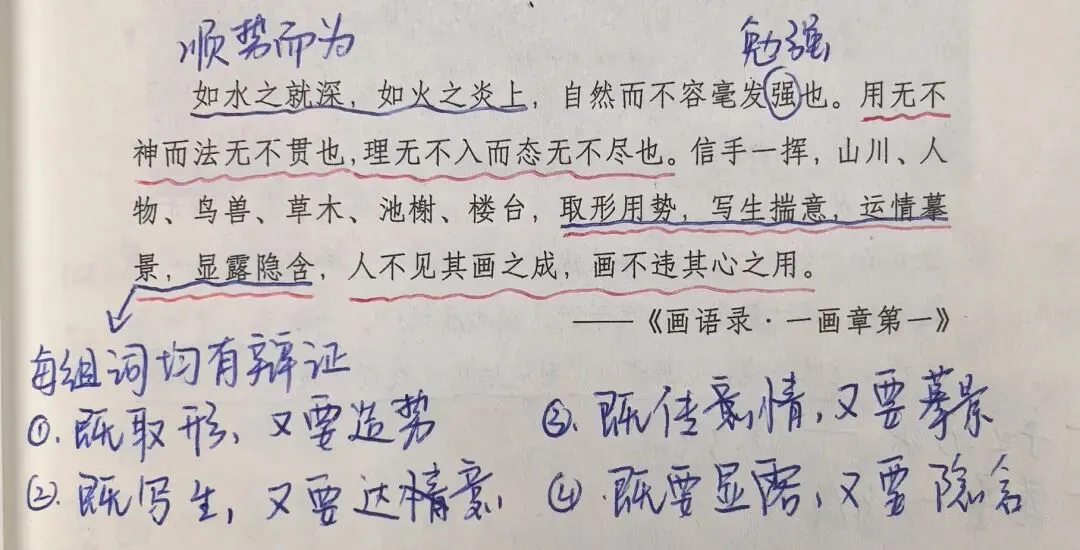 顺势而为 勉强
如水之就深，如火之炎上，自然而不容毫发强也。用无不
神而法无不贯也，理无不入而态无不尽也。信手一挥，山川、人
物、鸟兽、草木、池榭、楼台，取形用势，写生揣意，运情摹
景，显露隐含，人不见其画之成，画不违其心之用。
——《画语录·一画章第一》
每组词均有辩证
①. 既取形，又要造势 ③. 既传意情，又要摹景
②. 既写生，又要达情意， ④. 既要显露，又要隐含